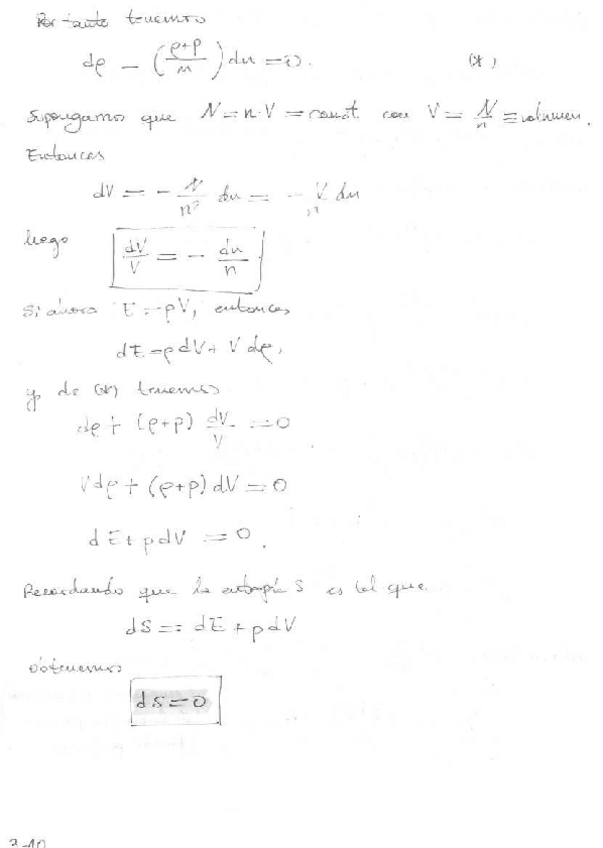 Por tanto tenemos
dρ - ((ρ+p)/n) dn = 0. (*)
Supongamos que N = n·V = const. con V = N/n ≡ volumen.
Entonces
dV = - N/n² dn = - V/n dn
luego
dV/V = - dn/n
Si ahora E = ρV, entonces,
dE = ρdV + Vdρ,
y de (*) tenemos
dρ + (ρ+p) dV/V = 0
Vdρ + (ρ+p)dV = 0
dE + pdV = 0.
Recordando que la entropía S es tal que
dS = dE + pdV
obtenemos
dS = 0
3-40